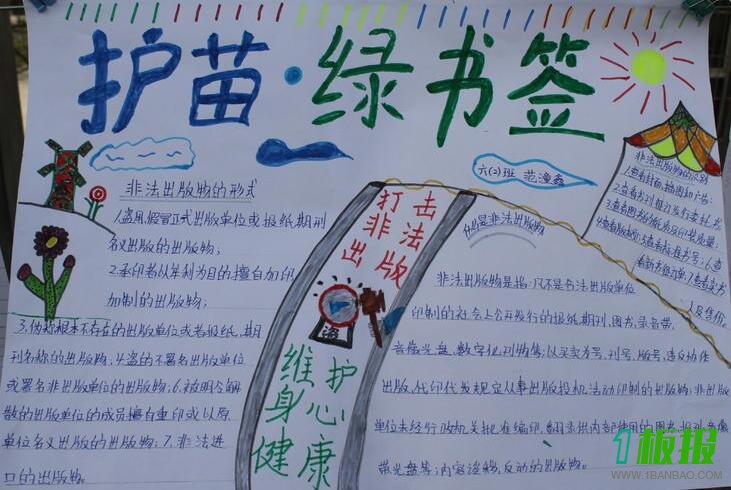 护苗·绿书签
六(2)班 范
非法出版物的形式
1.盗用、假冒正式出版单位或报纸期刊
名义出版的出版物;
2.承印者以牟利为目的擅自加印
加制的出版物;
3.伪称根本不存在的出版单位或者报纸、期
刊名称的出版物、4.盗的不署名出版单位
或署名非出版单位的出版物;6.被明令解
散的出版单位的成员擅自重印或以原
单位名义出版的出版物;7.非法进
口的出版物。
打击
非法
出版
盗
维护
身心
健康
什么是非法出版物
非法出版物是指:凡不是合法出版单位
印制的社会上公开发行的报纸期刊、图书、录音带、
光盘、数字化刊物等;以买卖书号、刊号、版号、违反协作
出版、代印代发规定从事出版投机活动印制的出版物;非出版
单位未经行政机关批准编印、翻录供内部使用的图书、报刊、音像
带光盘等;内容淫秽、反动的出版物。
非法出版物的识别
1.查看封面、插图和广告;
3.查看图书的纸质及印装质量;
人及售价。
1板报
WWW.1BANBAO.COM